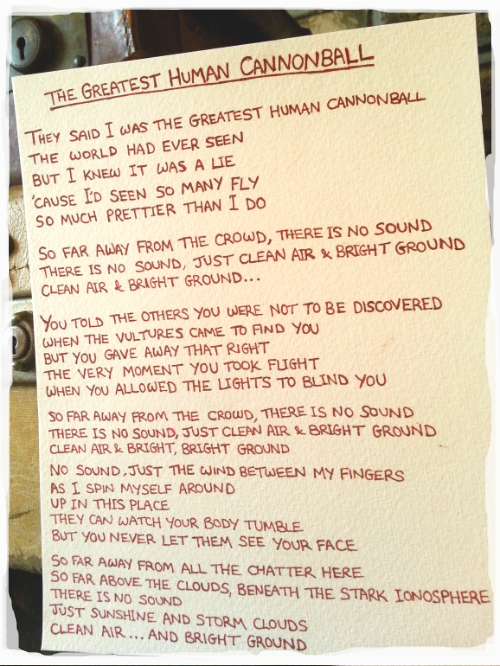 THE GREATEST HUMAN CANNONBALL
THEY SAID I WAS THE GREATEST HUMAN CANNONBALL
THE WORLD HAD EVER SEEN
BUT I KNEW IT WAS A LIE
'CAUSE I'D SEEN SO MANY FLY
SO MUCH PRETTIER THAN I DO
SO FAR AWAY FROM THE CROWD, THERE IS NO SOUND
THERE IS NO SOUND, JUST CLEAN AIR & BRIGHT GROUND
CLEAN AIR & BRIGHT GROUND...
YOU TOLD THE OTHERS YOU WERE NOT TO BE DISCOVERED
WHEN THE VULTURES CAME TO FIND YOU
BUT YOU GAVE AWAY THAT RIGHT
THE VERY MOMENT YOU TOOK FLIGHT
WHEN YOU ALLOWED THE LIGHTS TO BLIND YOU
SO FAR AWAY FROM THE CROWD, THERE IS NO SOUND
THERE IS NO SOUND, JUST CLEAN AIR & BRIGHT GROUND
CLEAN AIR & BRIGHT, BRIGHT GROUND
NO SOUND, JUST THE WIND BETWEEN MY FINGERS
AS I SPIN MYSELF AROUND
UP IN THIS PLACE
THEY CAN WATCH YOUR BODY TUMBLE
BUT YOU NEVER LET THEM SEE YOUR FACE
SO FAR AWAY FROM ALL THE CHATTER HERE
SO FAR ABOVE THE CLOUDS, BENEATH THE STARK IONOSPHERE
THERE IS NO SOUND
JUST SUNSHINE AND STORM CLOUDS
CLEAN AIR... AND BRIGHT GROUND